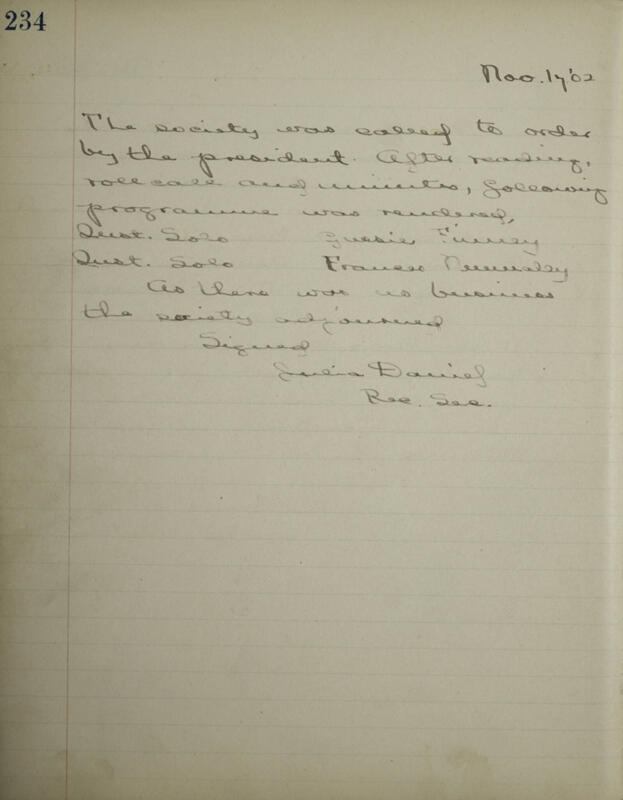 234
Nov. 17 '02
The society was called to order
by the president. After reading,
roll call and minutes, following
programme was rendered,
Inst. Solo Gussie Finney
Inst. Solo Frances Nunnally
As there was no business
the society adjourned
Signed
Julia Daniel
Rec. Sec.